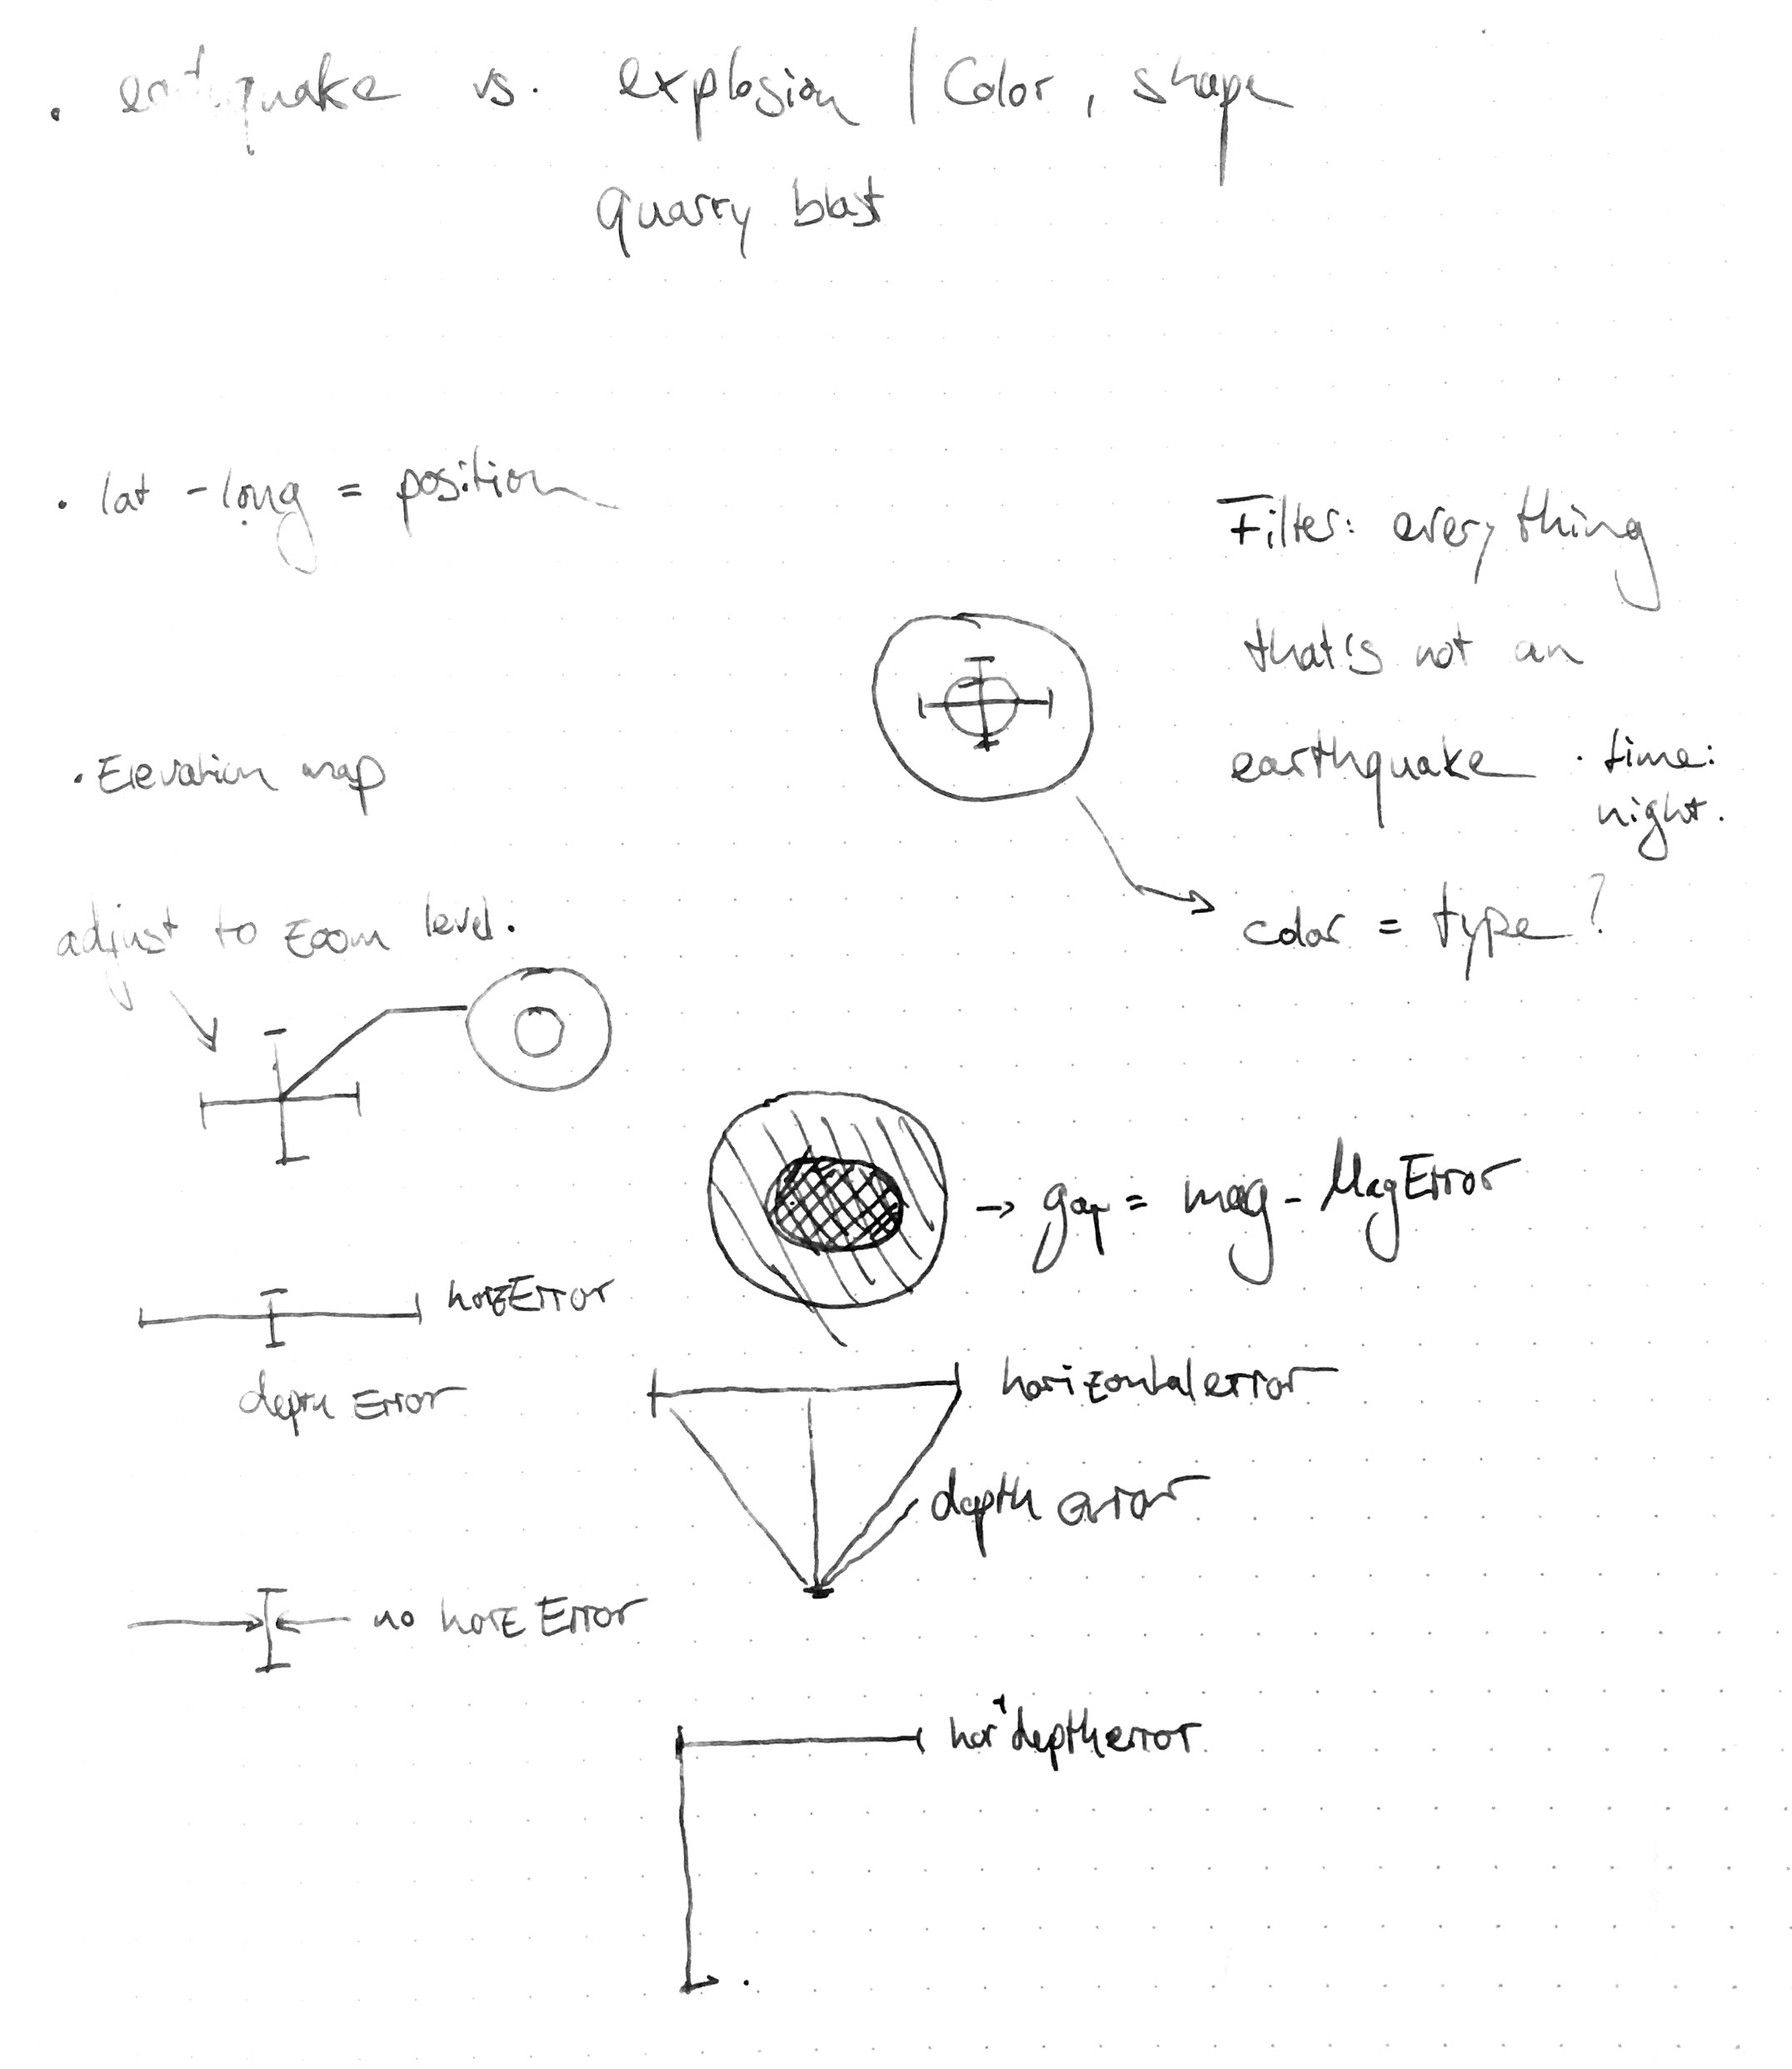 . earthquake vs. explosion | Color, shape
quarry blast
. lat - long = position
Filter: everything
that's not an
earthquake . time:
night.
. Elevation map
color = type ?
adjust to zoom level.
→ gap = mag - MagError
horzError
depth Error
horizontal error
depth error
no horz Error
hor + depth error